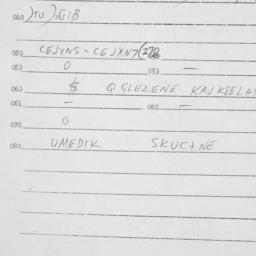 040 )TU)=GIB
050 CEJXNS = CEJXN7(27B
052 O 053 —
060 $ Q GLEZENE KAJ KSELA
061 — 062 —
070 O
080 UMEDIK SKUCTNE